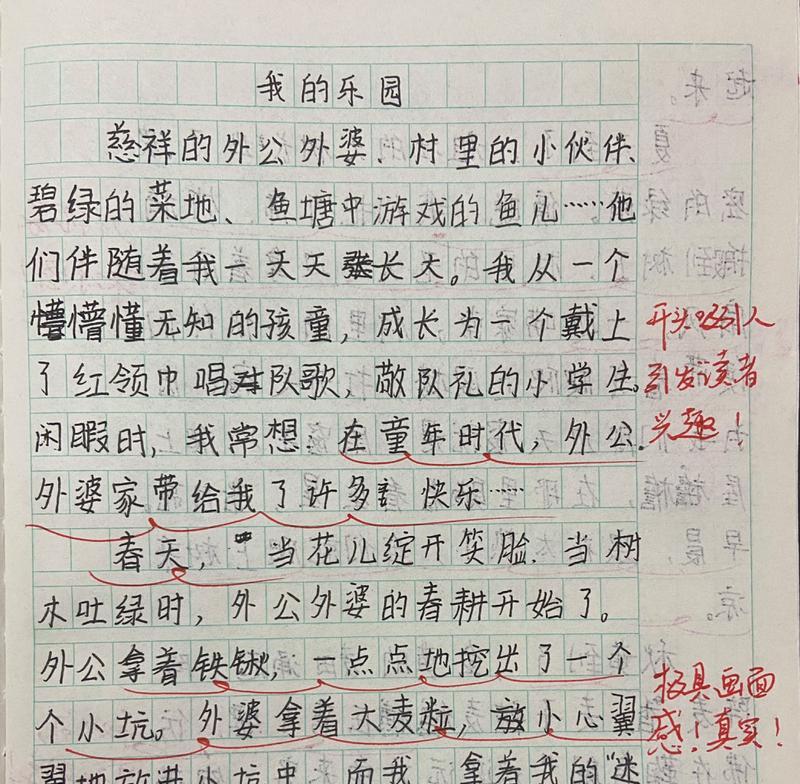 我的乐园
慈祥的外公外婆、村里的小伙伴、
碧绿的菜地、鱼塘中游戏的鱼儿……他
们伴随着我一天天长大。我从一个
懵懂无知的孩童，成长为一个戴上
了红领巾唱队歌，敬队礼的小学生。
闲暇时，我常想，在童年时代，外公、
外婆家带给我了许多快乐……
春天，当花儿绽开笑脸，当树
木吐绿时，外公外婆的春耕开始了。
外公拿着铁锹，一点点地挖出了一个
个小坑。外婆拿着大麦粒，小心翼
翼地放进小坑中，而我，拿着我的“迷
开头吸引人
引发读者
兴趣！
极具画面
感！真实！